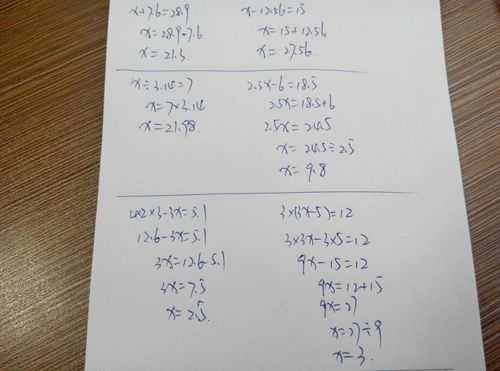 x+7.6=28.9
x=28.9-7.6
x=21.3
x-12.56=15
x=15+12.56
x=27.56
x÷3.14=7
x=7×3.14
x=21.98
2.5x-6=18.5
2.5x=18.5+6
2.5x=24.5
x=24.5÷2.5
x=9.8
4.2×3-3x=5.1
12.6-3x=5.1
3x=12.6-5.1
3x=7.5
x=2.5
3×(3x-5)=12
3×3x-3×5=12
9x-15=12
9x=12+15
9x=27
x=27÷9
x=3